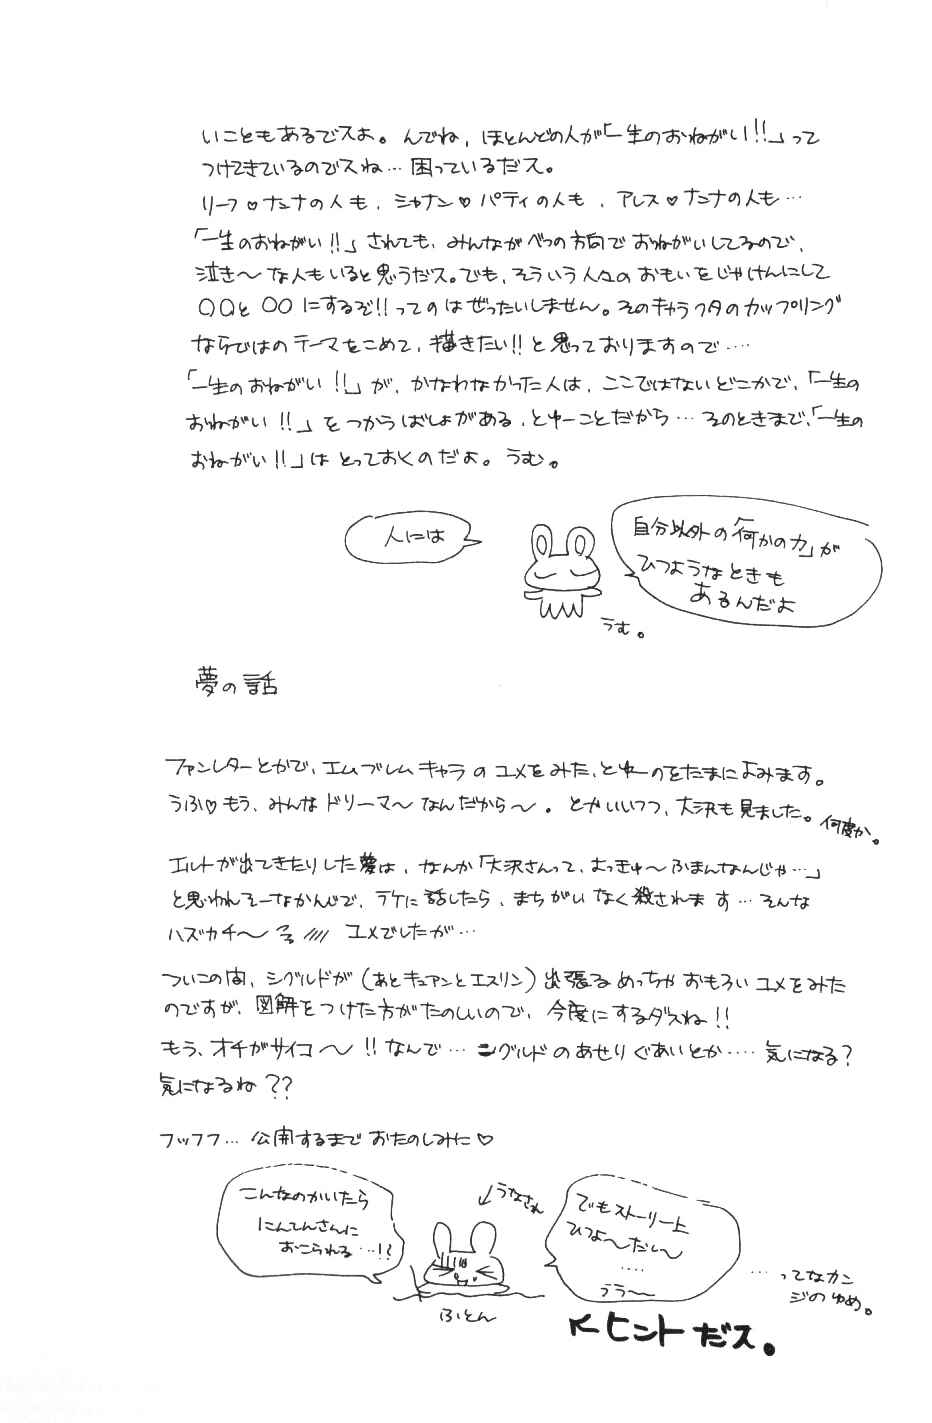 いこともあるでスよ。んでね、ほとんどの人が「一生のおねがい!!」って
つけてきているのでスね…困っているだス。
リーフ♡ナンナの人も、シャナン♡パティの人も、アレス♡ナンナの人も…
「一生のおねがい!!」されても、みんながべつの方向でおねがいしてるので、
泣き〜な人もいると思うだス。でも、そういう人々のおもいをじゃけんにして
○○と○○にするぞ!!ってのはぜったいしません。そのキャラクタのカップリング
ならではのテーマをこめて、描きたい!!と思っておりますので‥‥
「一生のおねがい!!」が、かなわなかった人は、ここではないどこかで、「一生の
おねがい!!」をつかうばしょがある、とゆーことだから…そのときまで、「一生の
おねがい!!」はとっておくのだよ。うむ。
人には
自分以外の「何かの力」が
ひつようなときも
あるんだよ
うむ。
夢の話
ファンレターとかで、エムブレムキャラのユメをみた、とゆーのをたまによみます。
うふ♡もう、みんなドリーマ〜なんだから〜。とかいいつつ、大沢も見ました。何度か。
エルトが出てきたりした夢は、なんか「大沢さんって、よっきゅ〜ふまんなんじゃ…」
と思われそーなかんじで、ラケに話したら、まちがいなく殺されます…そんな
ハズカチ〜 ユメでしたが…
ついこの間、シグルドが(あとキュアンとエスリン)出張るめっちゃおもろいユメをみた
のですが、図解をつけた方がたのしいので、今度にするダスね!!
もう、オチがサイコ〜!!なんで…シグルドのあせりぐあいとか‥‥気になる?
気になるね??
フッフフ…公開するまでおたのしみに♡
こんなのかいたら
にんてんさんに
おこられる…!?
うなされ
ふとん
でもストーリー上
ひつよ〜だし〜
‥‥
うう〜
…ってなカン
ジのゆめ。
←ヒントだス。